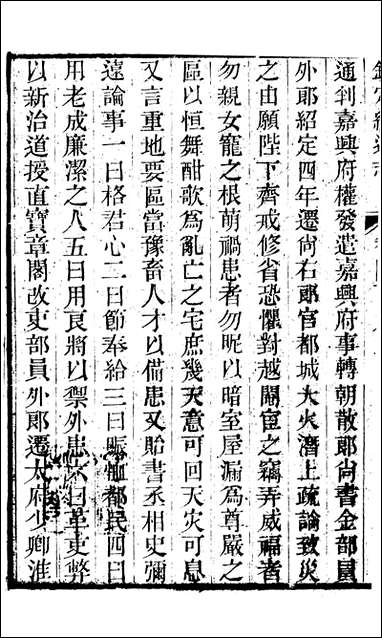 欽定續通志
通判嘉興府權發遣嘉興府事轉朝散郎尚書金部員
外郎紹定四年遷尚右郎官都城大火濳上疏論致災
之由願陛下齊戒修省恐懼對越閹宦之竊弄威福者
勿親女寵之根萌禍患者勿昵以暗室屋漏為尊嚴之
區以恒舞酣歌為亂亡之宅庶幾天意可回天災可息
又言重地要區當豫畜人才以備患又貽書丞相史彌
遠論事一曰格君心二曰節奉給三曰賑恤都民四曰
用老成廉潔之人五曰用良將以禦外患六曰革吏弊
以新治道授直寶章閣改吏部員外郎遷太府少卿淮